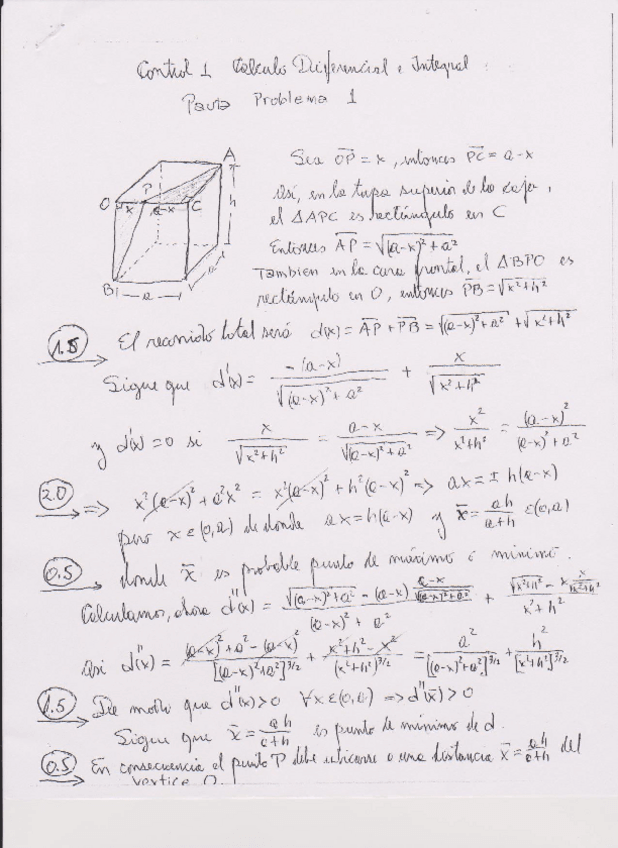 Control 1 Calculo Diferencial e Integral
Pauta Problema 1
A
O
P
x
a-x
C
h
B
a
a
Sea OP = x, entonces PC = a-x
Así, en la tapa superior de la caja,
el ΔAPC es rectángulo en C
Entonces AP = √((a-x)²+a²)
Tambien en la cara frontal, el ΔBPO es
rectángulo en O, entonces PB = √(x²+h²)
1.5 El recorrido total será d(x) = AP + PB = √((a-x)²+a²) + √(x²+h²)
Sigue que d'(x) = -(a-x)/√((a-x)²+a²) + x/√(x²+h²)
y d'(x) = 0 si x/√(x²+h²) = (a-x)/√((a-x)²+a²) => x²/(x²+h²) = (a-x)²/((a-x)²+a²)
2.0 => x²(a-x)² + a²x² = x²(a-x)² + h²(a-x)² => ax = ± h(a-x)
pero x ∈ (0,a) de donde ax = h(a-x) y x̄ = ah/(a+h) ∈ (0,a)
0.5 donde x̄ es probable punto de máximo o mínimo.
Calculamos, ahora d''(x) = (√((a-x)²+a²) - (a-x) (a-x)/√((a-x)²+a²))/((a-x)²+a²) + (√(x²+h²) - x x/√(x²+h²))/(x²+h²)
Así d''(x) = ((a-x)²+a²-(a-x)²)/[(a-x)²+a²]^(3/2) + (x²+h²-x²)/(x²+h²)^(3/2) = a²/[(a-x)²+a²]^(3/2) + h²/[x²+h²]^(3/2)
1.5 De modo que d''(x)>0 ∀x∈(0,a) => d''(x̄)>0
Sigue que x̄ = ah/(a+h) es punto de mínimo de d.
0.5 En consecuencia el punto P debe ubicarse a una distancia x̄ = ah/(a+h) del
vertice O.